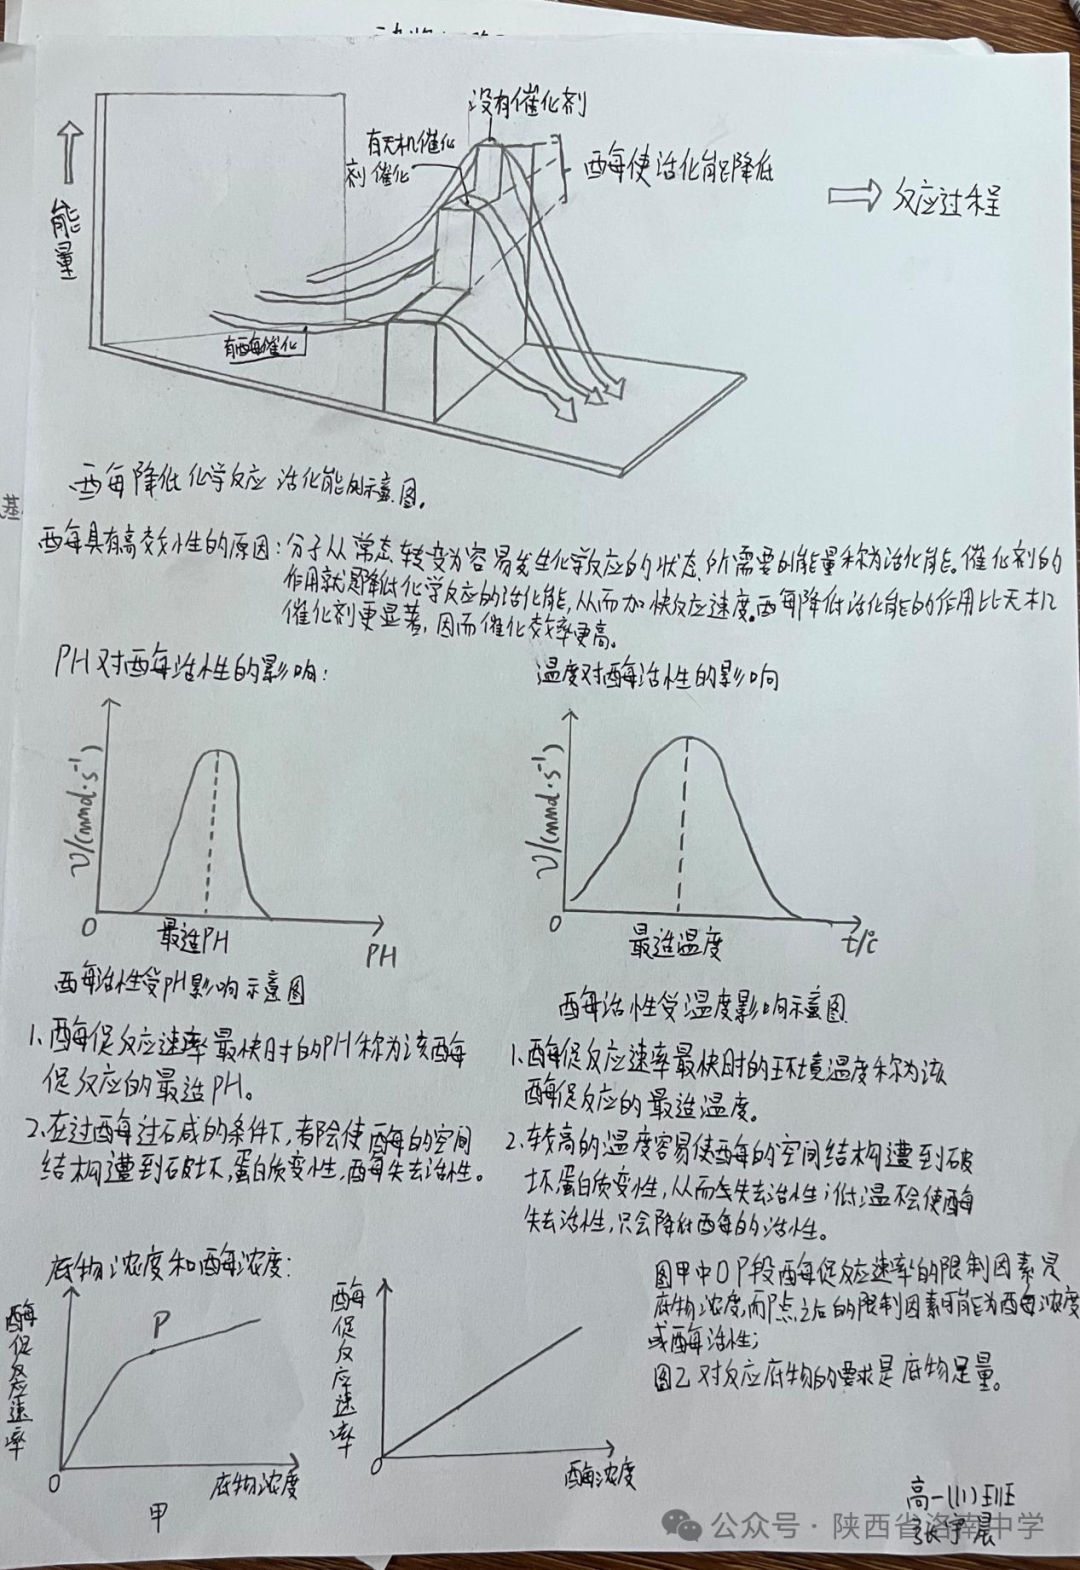 没有催化剂
有无机催化
剂催化
酶使活化能降低
反应过程
能量
有酶催化
酶降低化学反应活化能的示意图。
酶具有高效性的原因：分子从常态转变为容易发生化学反应的状态所需要的能量称为活化能。催化剂的
作用就是降低化学反应的活化能，从而加快反应速度。酶降低活化能的作用比无机
催化剂更显著，因而催化效率更高。
PH对酶活性的影响：
温度对酶活性的影响
v/(mmol·s⁻¹)
0
最适PH
PH
v/(mmol·s⁻¹)
0
最适温度
t/℃
酶活性受PH影响示意图
酶活性受温度影响示意图
1、酶促反应速率最快时的PH称为该酶
促反应的最适PH。
2、在过酶过碱的条件下，都会使酶的空间
结构遭到破坏，蛋白质变性，酶失去活性。
1、酶促反应速率最快时的环境温度称为该
酶促反应的最适温度。
2、较高的温度容易使酶的空间结构遭到破
坏，蛋白质变性，从而失去活性；低温不会使酶
失去活性，只会降低酶的活性。
底物浓度和酶浓度：
酶促反应速率
P
0
底物浓度
甲
酶促反应速率
0
酶浓度
图甲中OP段酶促反应速率的限制因素是
底物浓度，而P点之后的限制因素可能为酶浓度
或酶活性；
图乙对反应底物的要求是底物足量。
高一(11)班
张宇晨
公众号·陕西省洛南中学
基